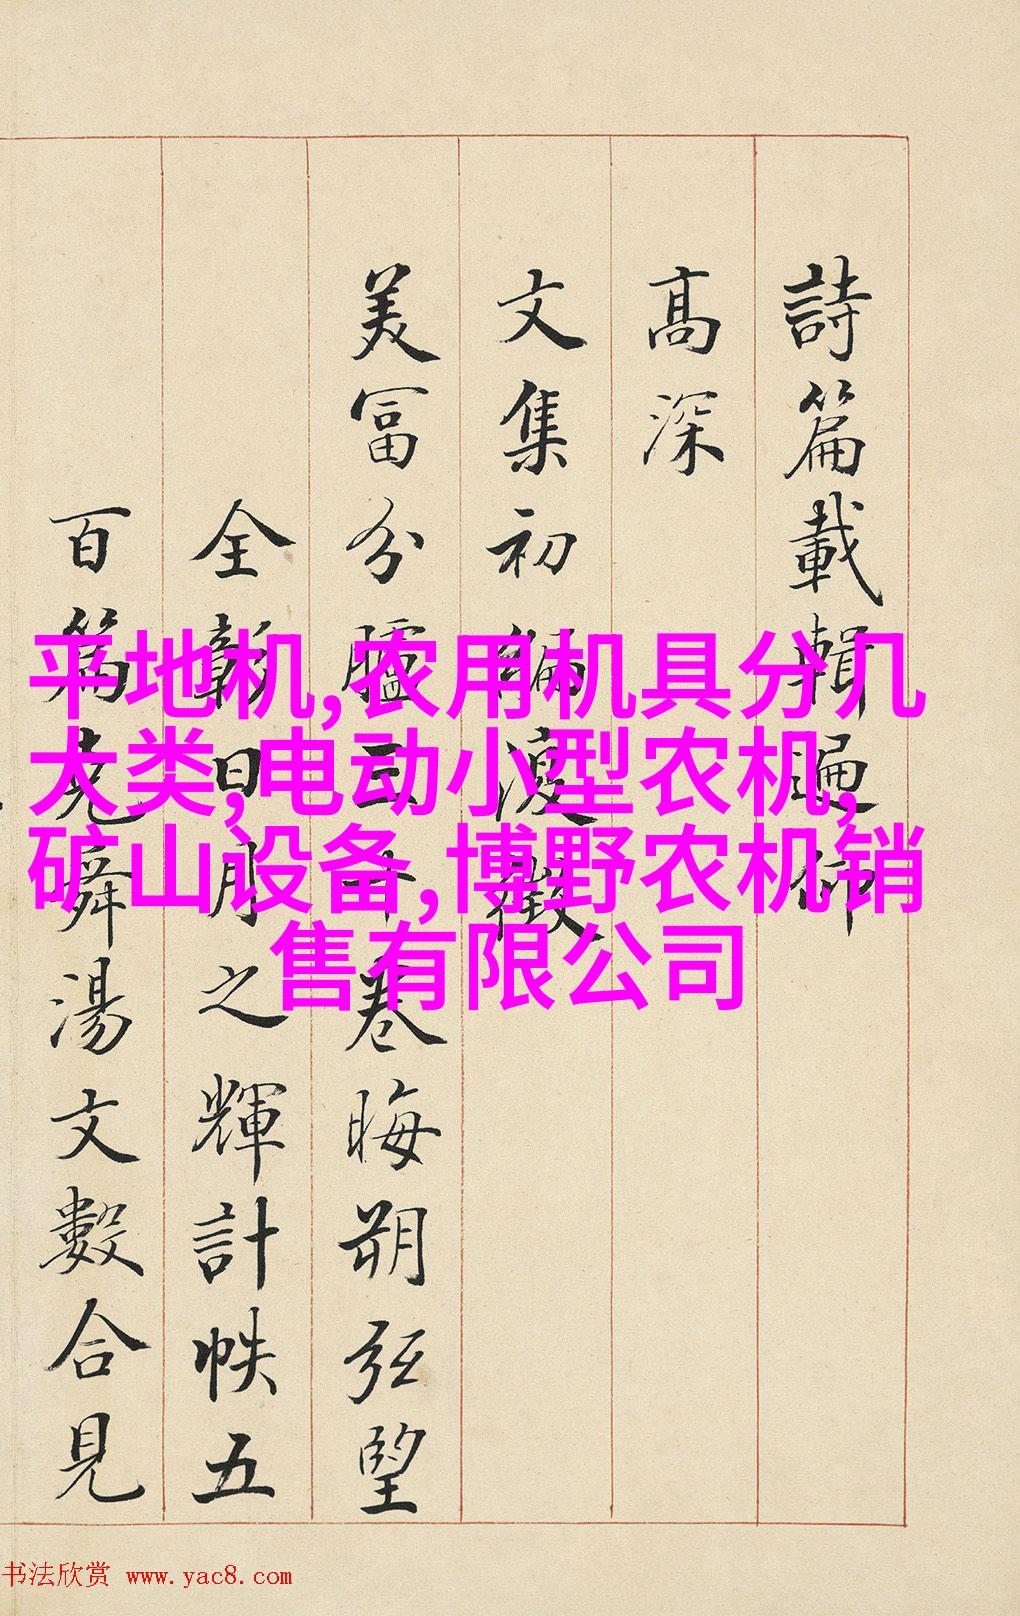 詩篇載輯遍仰
高深
文集初編復徵
美富分臚三十卷晦朔弦望
全彰日月之輝計帙五
百篇堯舜湯文數合見
平地机,农用机具分几
大类,电动小型农机,
矿山设备,博野农机销
售有限公司
书法欣赏 www.yac8.com